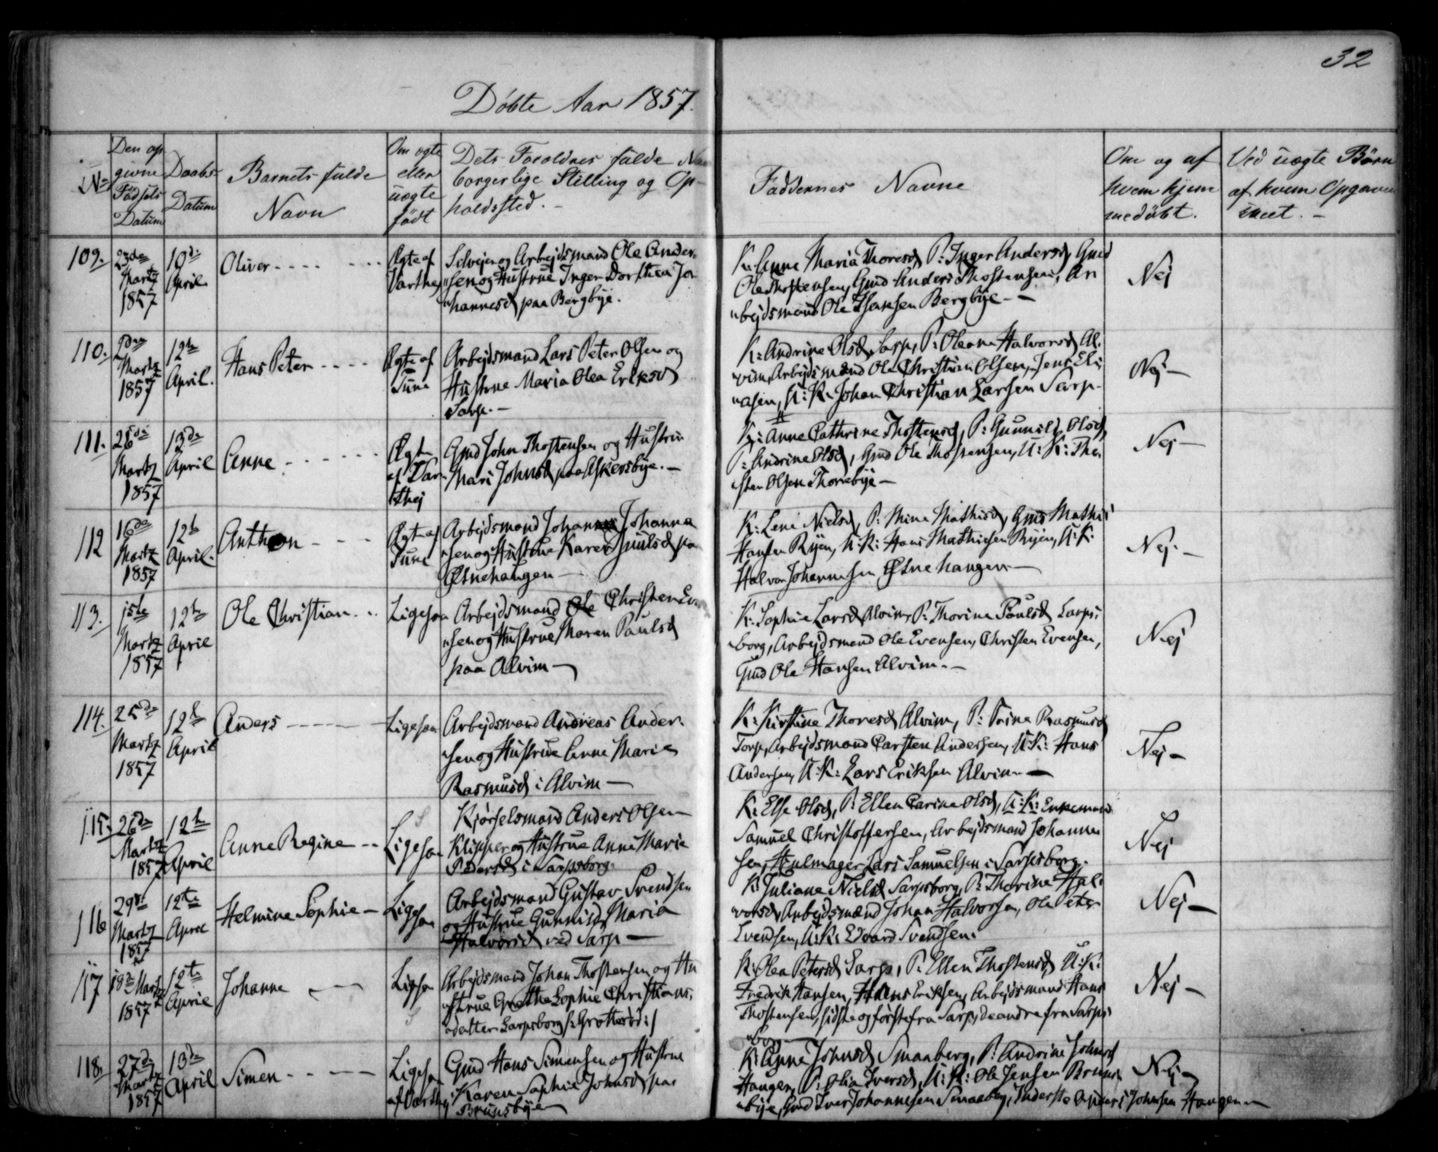 32
Døbte Aar 1857.
No
Den op
givne
Fødsels
Datum
Daabs
Datum
Barnets fulde
Navn
Om ægte
eller
uægte
født
Dets Forældres fulde Nav
borgerlige Stilling og Op-
holdssted.-
Faddernes Navne
Om og af
hvem hjem
medøbt.
Ved uægte Børn
af hvem Opgaven
skeet.-
109. 23de Martz 1857
10de April.
Oliver
Ægte af Varthej
Selvejer og Arbejdsmand Ole Ander-
sen og Hustrue Inger Dorthea Jo-
hannesd paa Bergbye.
K: Anne Maria Thoresd, P: Inger Andersd, Gmd
Ole Thostensen, Gmd Anders Thostensen, Ar
bejdsmand Ole Hansen Bergbye-
Nej
110. 2den Martz 1857
12te April.
Hans Peter
Ægte af Tune
Arbejdsmand Lars Peter Olsen og
Hustrue Maria Olea Eriksd
Sarp.-
K: Andrine Olsd Sarp, P: Oleane Halvorsd Al-
vim, Arbejdsmænd Ole Christian Olsen, Jens Eli
asen, U: K: Johan Christian Larsen Sarp-
Nej-
111. 28de Martz 1857
13de April
Anne
Ægte af Var thej
Gmd John Thostensen og Hustrue
Mari Johnsd paa Askersbye.-
K: Anne Cathrine Thostensd, P: Gunnild Olsd,
P: Andrine Olsd, Gmd Ole Thostensen, U: K: Tho
sten Olsen Thorebye-
Nej-
112 16de Martz 1857
12te April.
Anthon
Ægte af Tune
Arbejdsmand Johannes Johanne
sen og Hustrue Karen Juulsd paa
Østnehaugen-
K: Leni Nielsd, P: Mine Mathisd, Gmd Mathis
Hansen Ryen, U: K: Hans Mathiesen Ryen, U: K:
Halvor Johannesen Østne haugen-
Nej-
113. 15de Martz 1857
12te April
Ole Christian
Ligesaa
Arbejdsmand Ole Christen Even
sen og Hustrue Maren Paulsd
paa Alvim-
K: Sophie Larsd Alvim, P: Thorine Paulsd Sarps-
borg, Arbejdsmænd Ole Evensen, Christen Evensen,
Gmd Ole Hansen Alvim.-
Nej
114. 25de Martz 1857
12te April
Anders
Ligesaa
Arbejdsmand Andreas Ander-
sen og Hustrue Anne Marie
Rasmusd i Alvim-
K: Kirstine Thoresd Alvim, P: Trine Rasmusd
Torp, Arbejdsmand Carsten Andersen, U: K: Hans
Andersen, U: K: Lars Eriksen Alvim-
Nej-
115. 26de Martz 1857
12te April
Anne Regine
Ligesaa
Kjørselsmand Anders Olsen
Klipper og Hustrue Anne Marie
Pedersd i Sarpsborg
K: Else Olsd, P: Ellen Carine Olsd, U: K: Enkemand
Samuel Christoffersen, Arbejdsmand Johanne
sen, Hjulmager Lars Samuelsen i Sarpsborg.
Nej
116 29de Martz 1857
12te April
Helmine Sophie-
Ligesaa
Arbejdsmand Gustav Svendsen
og Hustrue Gunnild Maria
Halvorsd ved Sarp-
K: Juliane Nielsd Sarpsborg, P: Thorine Hal-
vorsd, Arbejdsmænd Johan Halvorsen, Ole Peter
Svendsen, U: K: Edvard Svendsen.
Nej-
117 19de Martz 1857
12te April
Johanne
Ligesaa
Arbejdsmand Johan Thostensen og Hu
strue Grethe Sophie Christians-
datter Sarpsborg
K: Olea Petersd Sarp, P: Ellen Thostensd, U: K:
Fredrik Hansen, Hans Eriksen, Arbejdsmand Hans
Thostensen, sidste og første fra Sarp, de andre fra Sarps-
borg
Nej-
118. 27de Martz 1857
13de April
Simen
Ligesaa af Varthej
Gmd Hans Simensen og Hustrue
Karen Sophie Johnsd paa
Brunsbye
K: Anne Johnsd Smaaberg, P: Andrine Johnsd
Haugen, P: Olia Iversd, U: K: Ole Jensen Bruns
bye, Gmd Iver Johannesen Smaaberg, Inderste Anders Johnsen Haugen-
Nej-